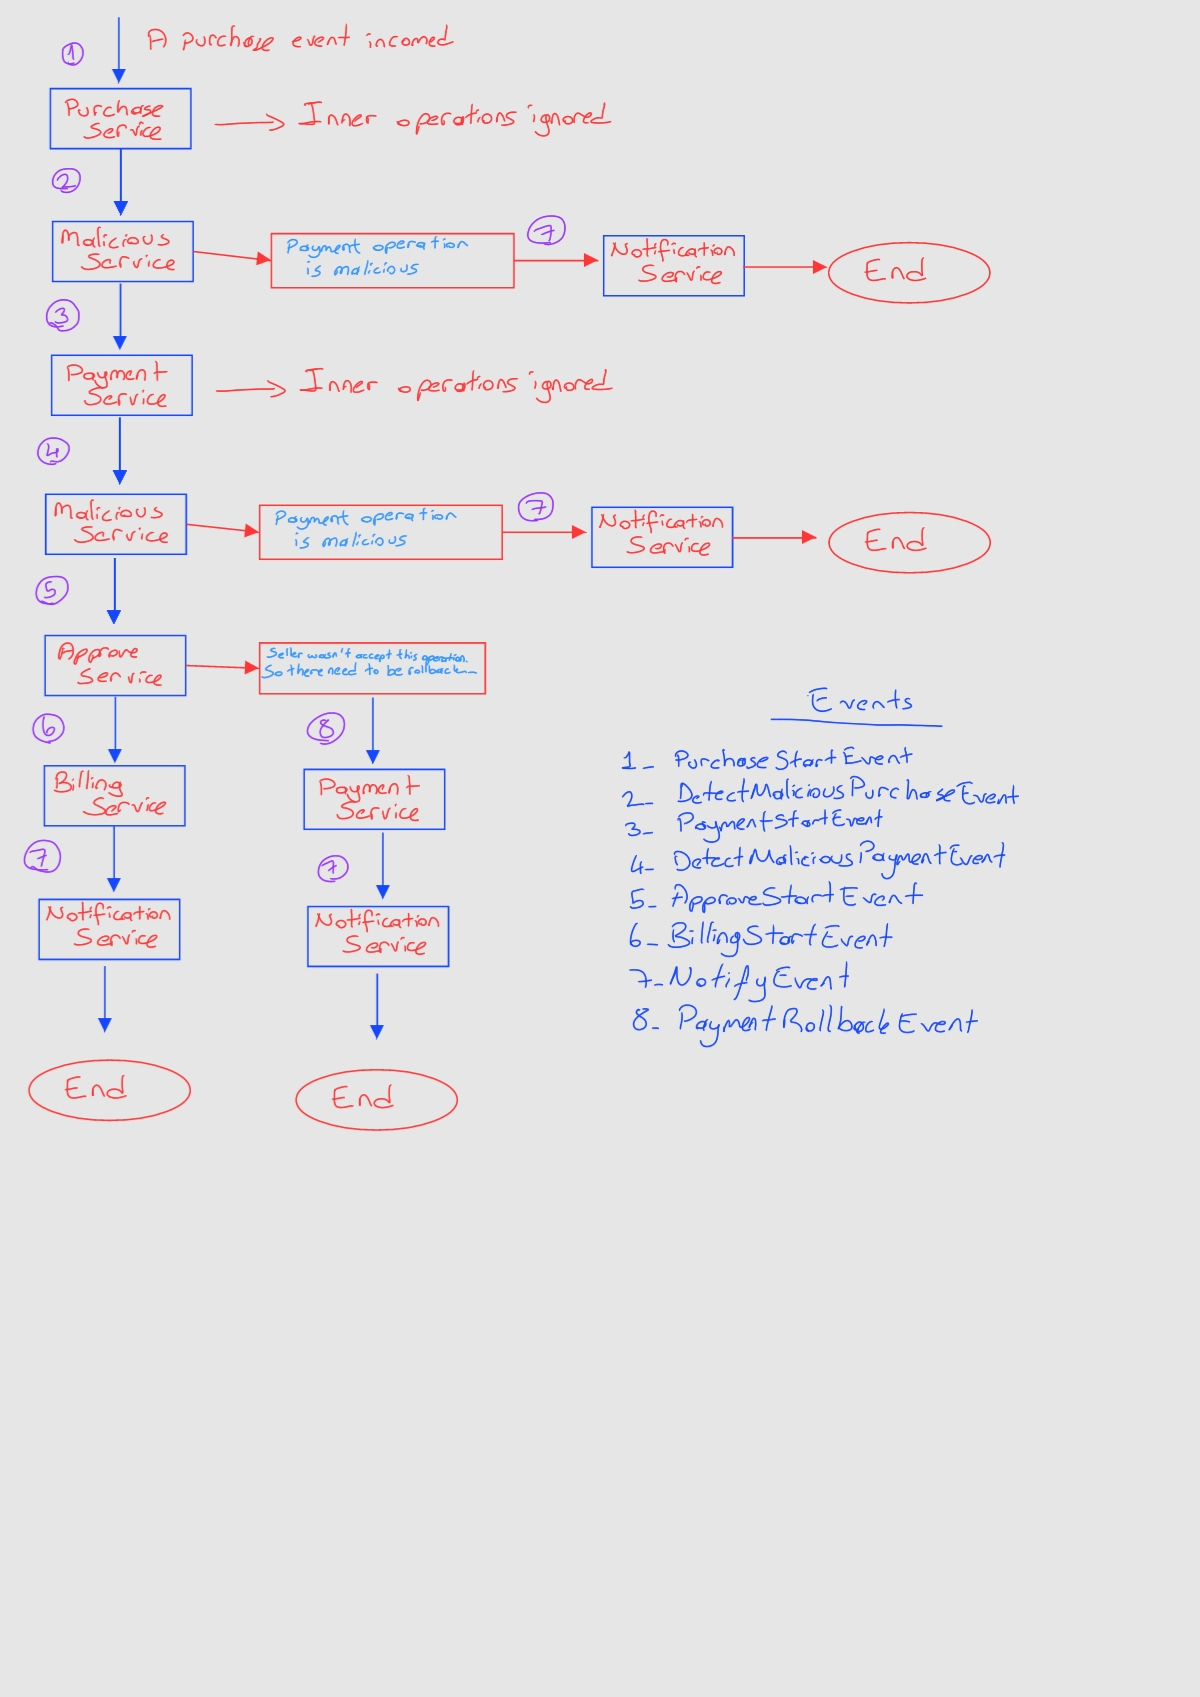 1
A purchase event incomed
Purchase
Service
Inner operations ignored
2
Malicious
Service
Payment operation
is malicious
7
Notification
Service
End
3
Payment
Service
Inner operations ignored
4
Malicious
Service
Payment operation
is malicious
7
Notification
Service
End
5
Approve
Service
Seller wasn't accept this operation.
So there need to be rollback...
6
8
Billing
Service
Payment
Service
7
7
Notification
Service
Notification
Service
End
End
Events
1_ PurchaseStartEvent
2_ DetectMaliciousPurchaseEvent
3_ PaymentStartEvent
4_ DetectMaliciousPaymentEvent
5_ ApproveStartEvent
6_ BillingStartEvent
7_ NotifyEvent
8_ PaymentRollbackEvent